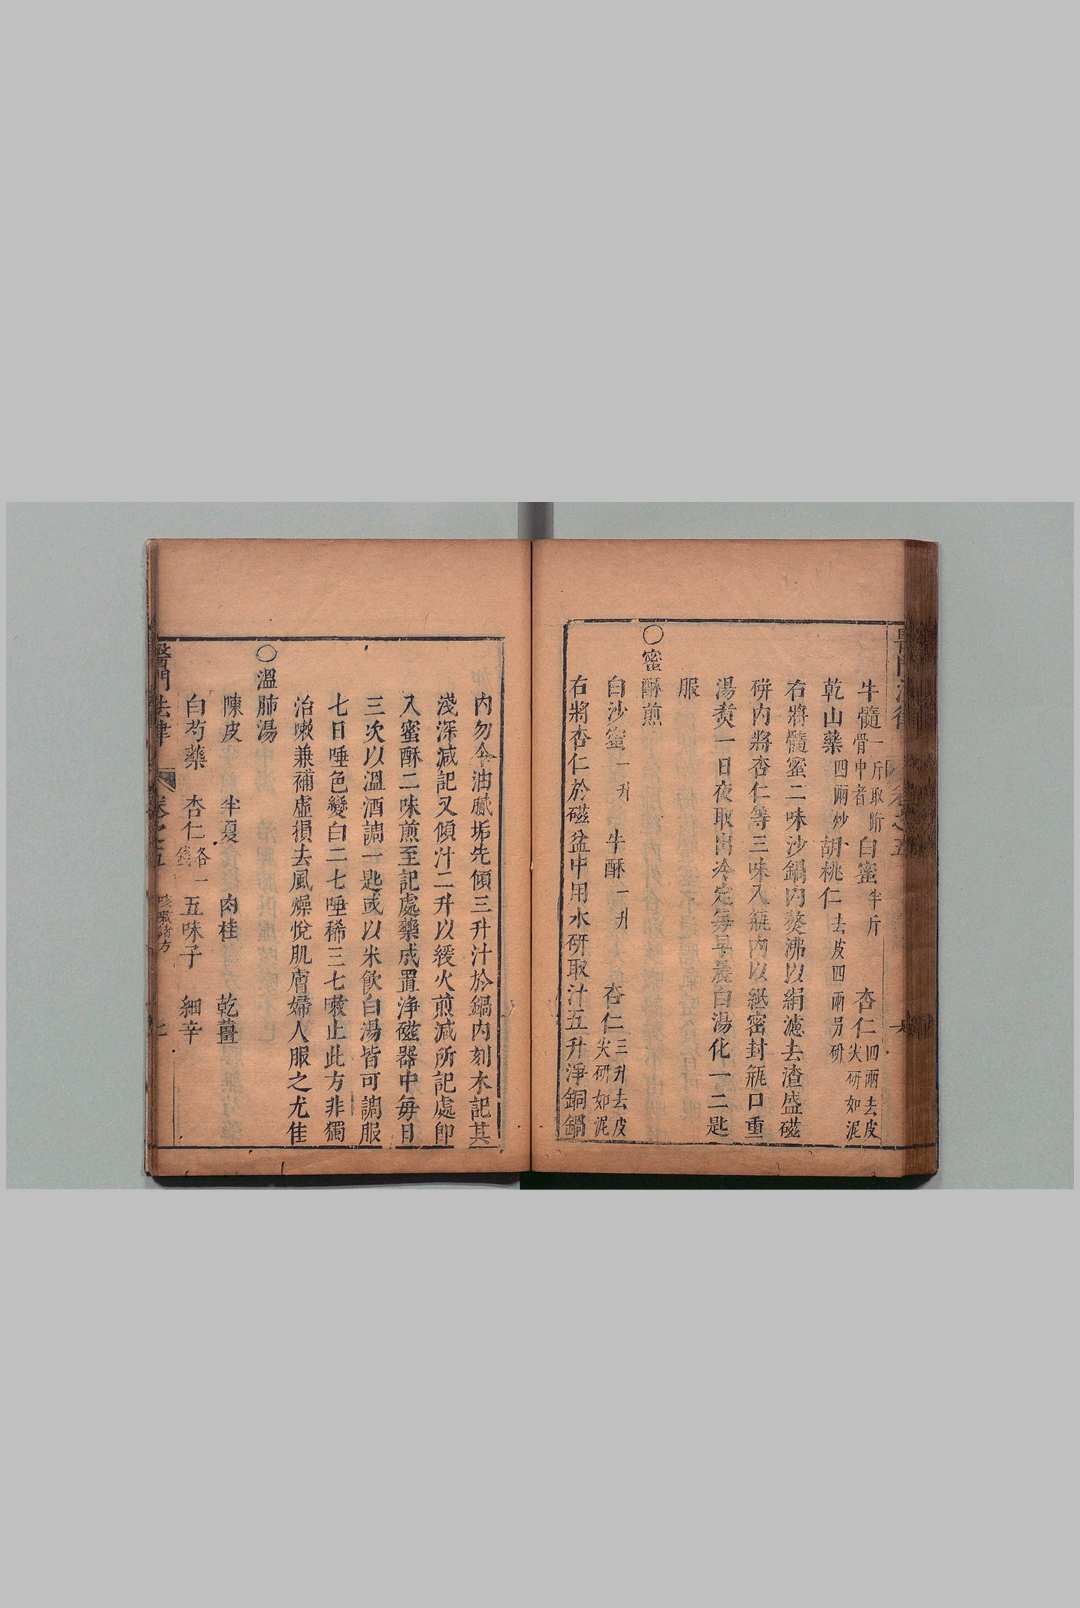 牛髓一斤取胻骨中者 白蜜半斤 杏仁四兩去皮尖研如泥
乾山藥四兩炒 胡桃仁去皮四兩另研
右將髓蜜二味沙鍋內熬沸以絹濾去渣盛磁
缾內將杏仁等三味入瓶內以紙密封瓶口重
湯煑一日夜取出冷定每早晨白湯化一二匙
服
〇蜜酥煎
白沙蜜一升 牛酥一升 杏仁三升去皮尖研如泥
右將杏仁於磁盆中用水研取汁五升淨銅鍋
內勿令油膩垢先傾三升汁於鍋內刻木記其
淺深減記又傾汁二升以緩火煎減所記處即
入蜜酥二味煎至記處藥成置淨磁器中每日
三次以溫酒調一匙或以米飲白湯皆可調服
七日唾色變白二七唾稀三七嗽止此方非獨
治嗽兼補虛損去風燥悅肌膚婦人服之尤佳
〇溫肺湯
陳皮 半夏 肉桂 乾薑
白芍藥 杏仁各一錢 五味子 細辛
醫門法律 卷之五 咳嗽諸方